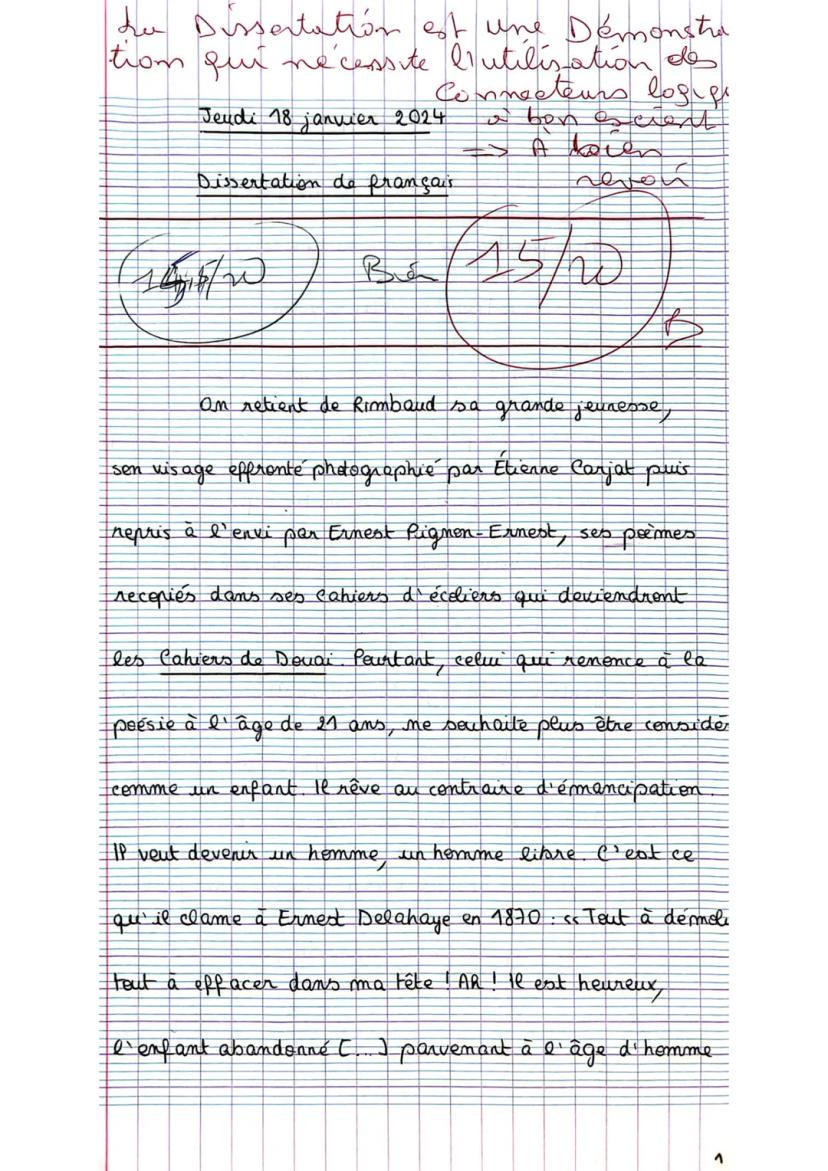 La Dissertation est une Démonstra
tion qui nécessite l'utilisation des
Connecteurs logiqu
Jeudi 18 janvier 2024 à bon escient
=> À bien
Dissertation de français revoir
Bien 15/20
On retient de Rimbaud sa grande jeunesse,
son visage effronté photographié par Étienne Carjat puis
repris à l'envi par Ernest Pignon-Ernest, ses poèmes
recopiés dans ses cahiers d'écoliers qui deviendront
les Cahiers de Douai. Pourtant, celui qui renonce à la
poésie à l'âge de 21 ans, ne souhaite plus être considér
comme un enfant. Il rêve au contraire d'émancipation.
Il veut devenir un homme, un homme libre. C'est ce
qu'il clame à Ernest Delahaye en 1870 : « Tout à démoli
tout à effacer dans ma tête ! AR ! Il est heureux,
l'enfant abandonné [...] parvenant à l'âge d'homme
1